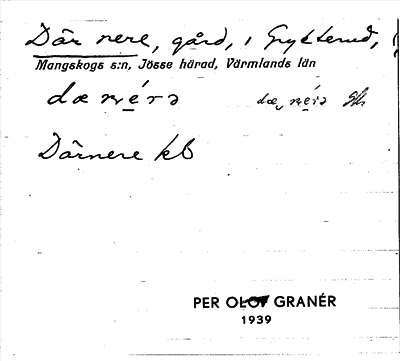 Där nere, gård, i Grytterud,
Mangskogs s:n, Jösse härad, Värmlands län
dæ nẹ́rə dæ, nẹ́rə
Därnere kb
PER OLOV GRANÉR
1939